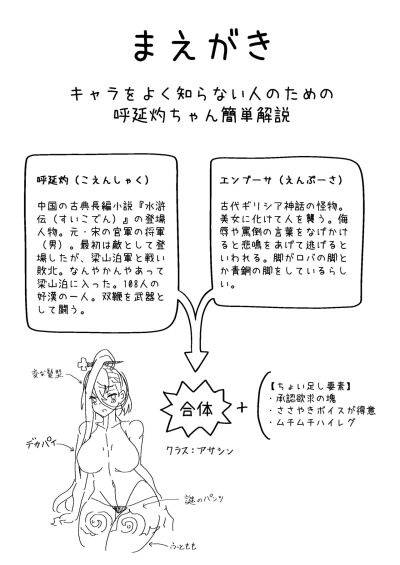 まえがき
キャラをよく知らない人のための
呼延灼ちゃん簡単解説
呼延灼(こえんしゃく)
中国の古典長編小説『水滸
伝(すいこでん)』の登場
人物。元・宋の官軍の将軍
(男)。最初は敵として登
場したが、梁山泊軍と戦い
敗北。なんやかんやあって
梁山泊に入った。108人の
好漢の一人。双鞭を武器と
して闘う。
エンプーサ(えんぷーさ)
古代ギリシア神話の怪物。
美女に化けて人を襲う。侮
辱や罵倒の言葉をなげかけ
ると悲鳴をあげて逃げると
いわれる。脚がロバの脚と
か青銅の脚をしているらし
い。
合体
+
【ちょい足し要素】
・承認欲求の塊
・ささやきボイスが得意
・ムチムチハイレグ
クラス:アサシン
変な髪型
デカパイ
謎のパンツ
ふともも